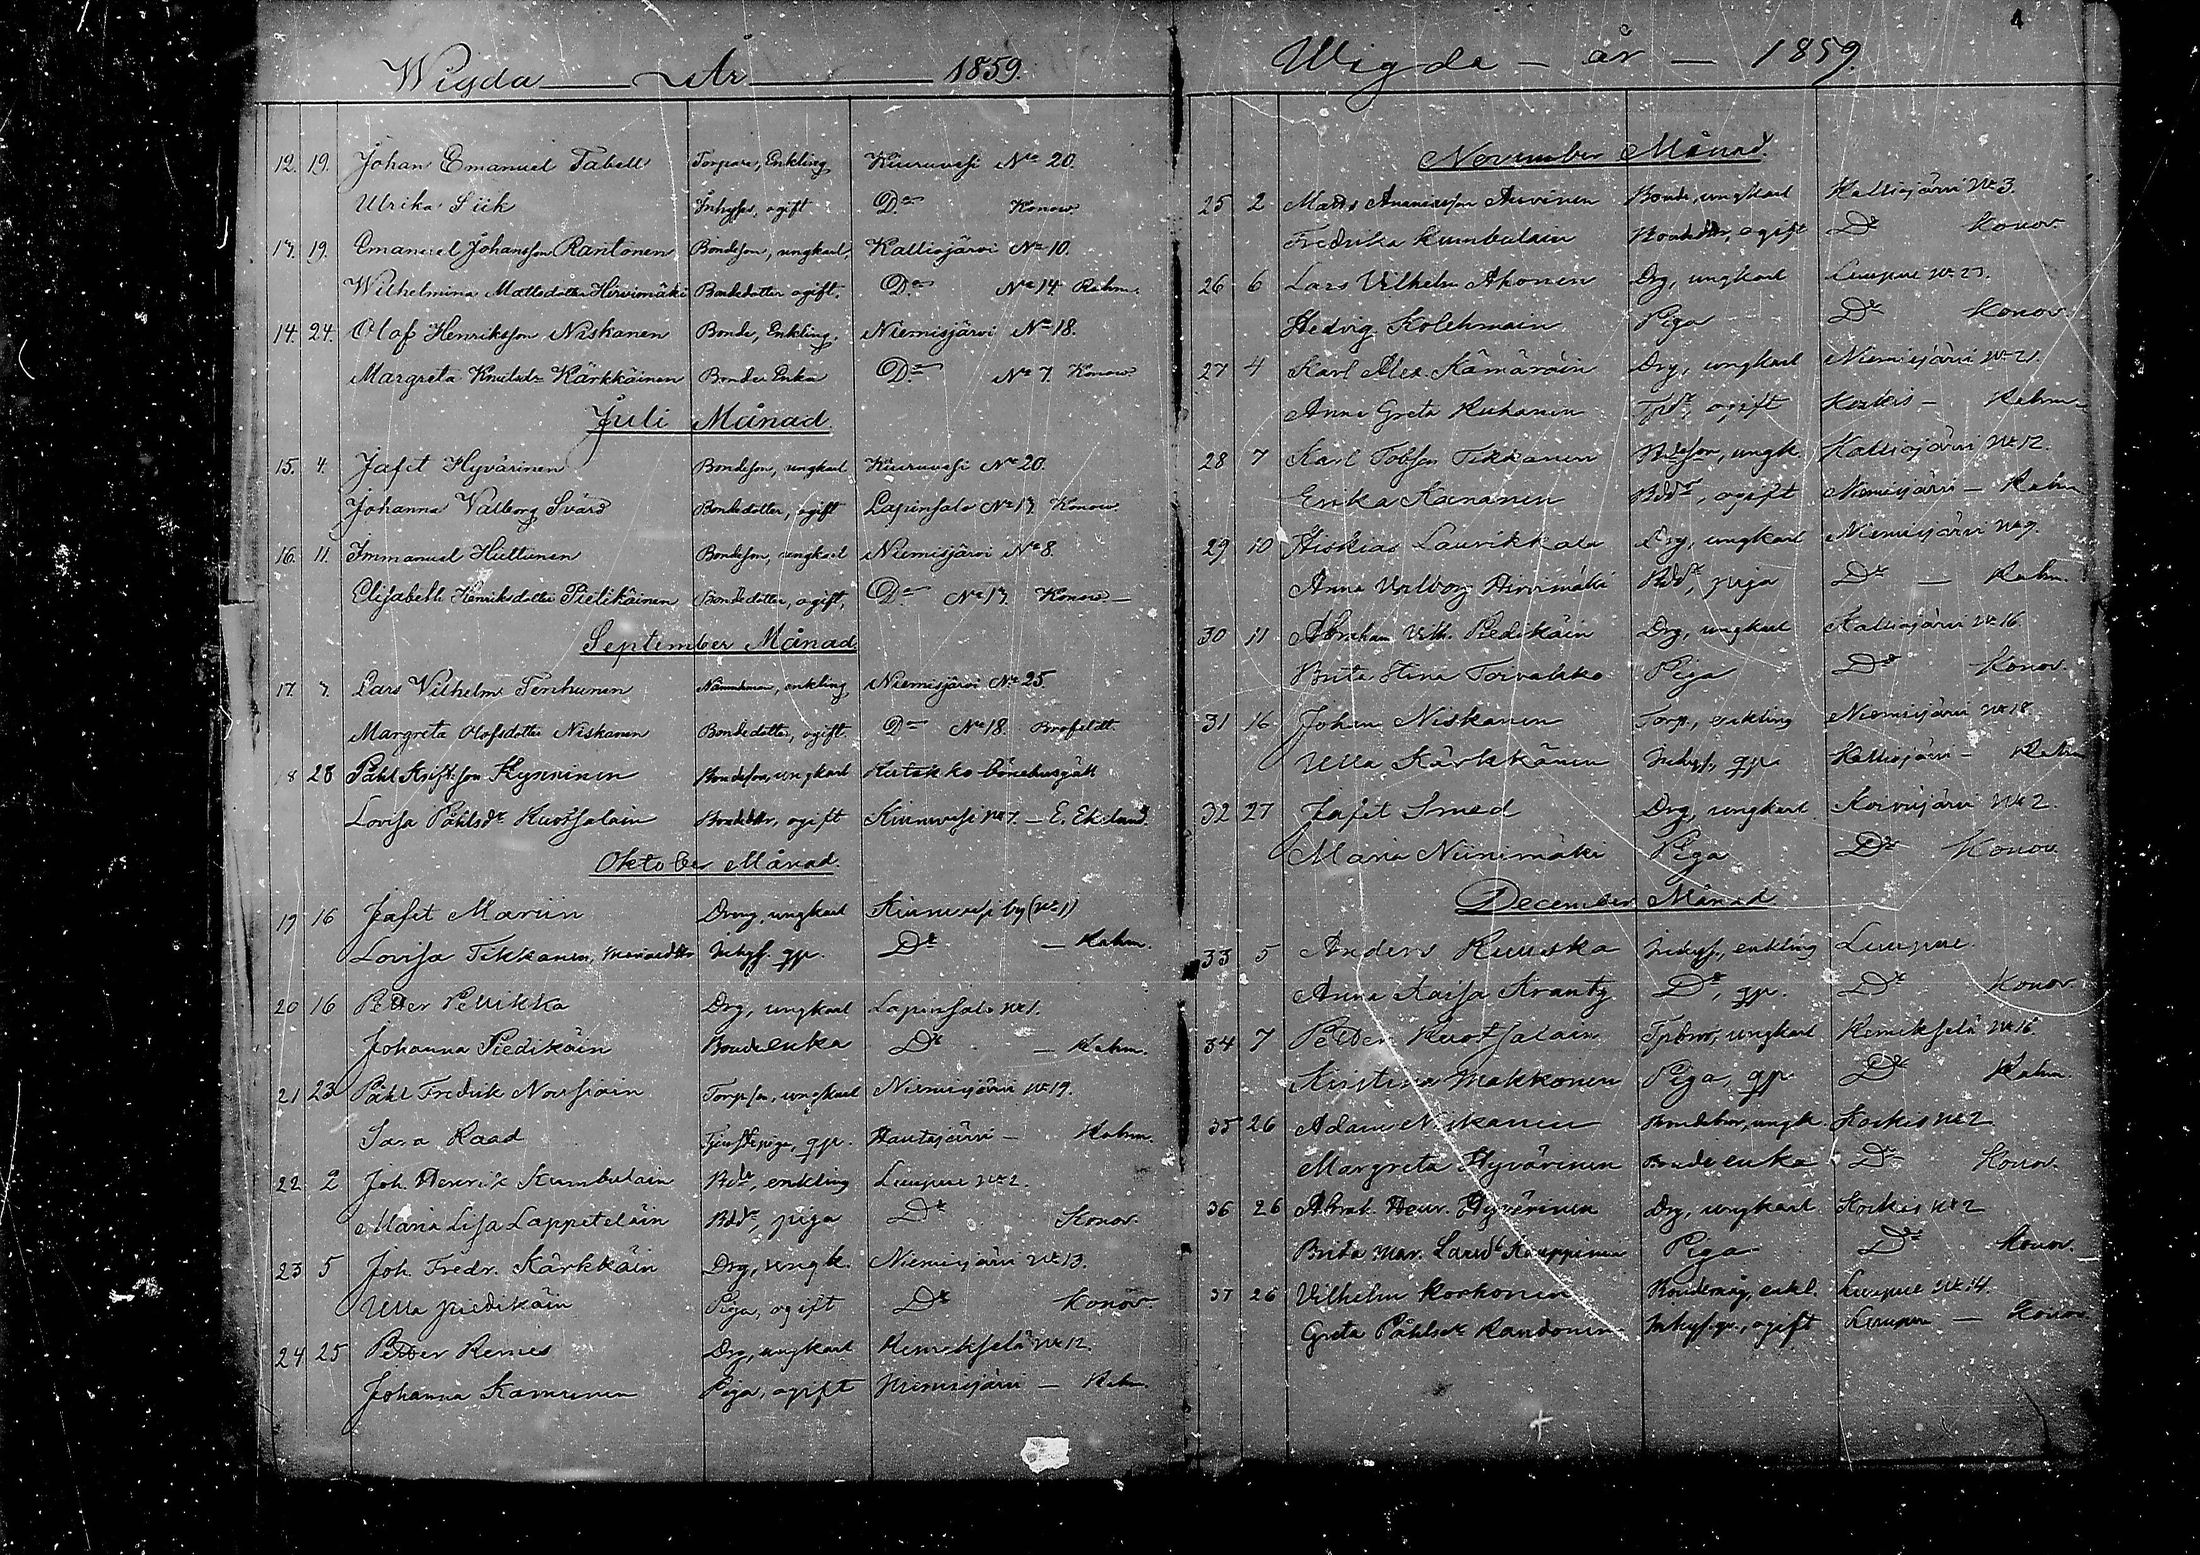 Wigda År 1859.
12. 19. Johan Emanuel Tabell Torpare, Enkling Kiuruvesi No 20.
Ulrika Siik Inhyses, ogift Do Konow.
13. 19. Emanuel Johansson Rantonen Bondeson, ungkarl, Kalliojärvi No 10.
Wilhelmina Mattsdotter Hirvimäki Bondedotter ogift. Do No 14 Rahm.
14. 24. Olof Henriksson Niskanen Bonde, Enkling. Niemisjärvi No 18.
Margreta Knutsdr Kärkkäinen Bonde Enka Do No 7. Konow
Juli Månad.
15. 4. Jafet Hyvärinen Bondeson, ungkarl Kiuruvesi No 20.
Johanna Valborg Svärd Bondedotter, ogift Lapinsalo No 13 Konow
16. 11. Immanuel Huttunen Bondeson, ungkarl Niemisjärvi No 8.
Elisabeth Henriksdotter Pielikäinen Bondedotter, ogift, Do No 13 Konow.—
September Månad
17. 7. Lars Vilhelm Tenhunen Nämndeman, enkling Niemisjärvi No 25.
Margreta Olofsdotter Niskanen Bondedotter, ogift. Do No 18 Brofeldt.
18 28 Påhl Krist.son Kynninen Bondeson, ungkarl Rutakko bönehusgäll
Lovisa Påhlsdr Ruotsalain Bondedttr, ogift Kiuruvesi No 7. — E. Eklund.
Oktober Månad.
19 16 Jafet Mariin Dreng, ungkarl Kiuruvesi by (No 1)
Lovisa Tikkanen, Inhys. qp. Do — Rahm.
20 16 Petter Pellikka Drg, ungkarl Lapinsalo No 1.
Johanna Piedikäin Bonde enka Do — Rahm.
21 23 Påhl Fredrik Nousiain Torpson, ungkarl Niemisjärvi No 19.
Sara Raad Tjenstepiga, qp. Hautajärvi — Rahm.
22. 2 Joh. Henrik Kumbulain Bde, enkling Luupue No 2.
Maria Lisa Lappeteläin Bddr, piga Do Konov.
23 5 Joh. Fredr. Kärkkäin Drg, ungk. Niemisjärvi No 13.
Ulla Piedikäin Piga, ogift Do Konov.
24 25 Petter Remes Drg, ungkarl Remekselä No 12.
Johanna Kamunen Piga, ogift Niemisjärvi — Rahm.
4
Wigde — år — 1859.
November Månad.
25 2 Matts Ananiasson Auvinen Bonde, ungkarl Kalliojärvi No 3.
Fredrika Kumbulain Bondedttr, ogift Do Konov.
26 6 Lars Vilhelm Ahonen Drg, ungkarl Luupue No 23.
Hedvig Kolehmain Piga Do Konov.
27 4 Karl Alex. Kämäräin Drg, ungkarl Niemisjärvi No 21.
Anna Greta Ruhanen Tpdr, ogift Korkis — Rahm.
28 7 Karl Tobson Tikkanen Bdeson, ungk. Kalliojärvi No 12.
Erika Kananen Bddr, ogift Niemisjärvi — Rahm
29 10 Hiskias Lauvikkala Drg, ungkarl Niemisjärvi No 9.
Anna Valborg Hirvimäki Bddr, piga Do — Rahm.
30 11 Abraham Vilh. Piedikäin Drg, ungkarl Kalliojärvi No 16.
Brita Stina Toivakko Piga Do Konov.
31 16 Johan Niskanen Torp., enkling Niemisjärvi No 18
Ulla Kärkkänen Inhys., qp. Kalliojärvi — Rahm
32 27 Jafet Smed Drg, ungkarl. Koivujärvi No 2.
Maria Niinimäki Piga Do Konov.
December Månad
33 5 Anders Ruuska Inhys., enkling Luupue.
Anna Kaisa Krantz Do, qp. Do Konov.
34 7 Petter Ruotsalain Tpbror, ungkarl Remekselä No 16
Kristina Makkonen Piga, qp. Do Rahm.
35 26 Adam Niskanen Bondebror, ungk. Korkis No 2
Margreta Hyvärinen Bonde enka Do Konov.
36 26 Abrah. Henr. Hyvärinen Drg, ungkarl. Korkis No 2
Brita Mar. Larsdr Kauppinen Piga Do Konov.
37 26 Vilhelm Korhonen Bondemåg, enkl. Luupue No 14.
Greta Påhlsdr Randonen Inhys.qv., ogift Luupue — Konov.